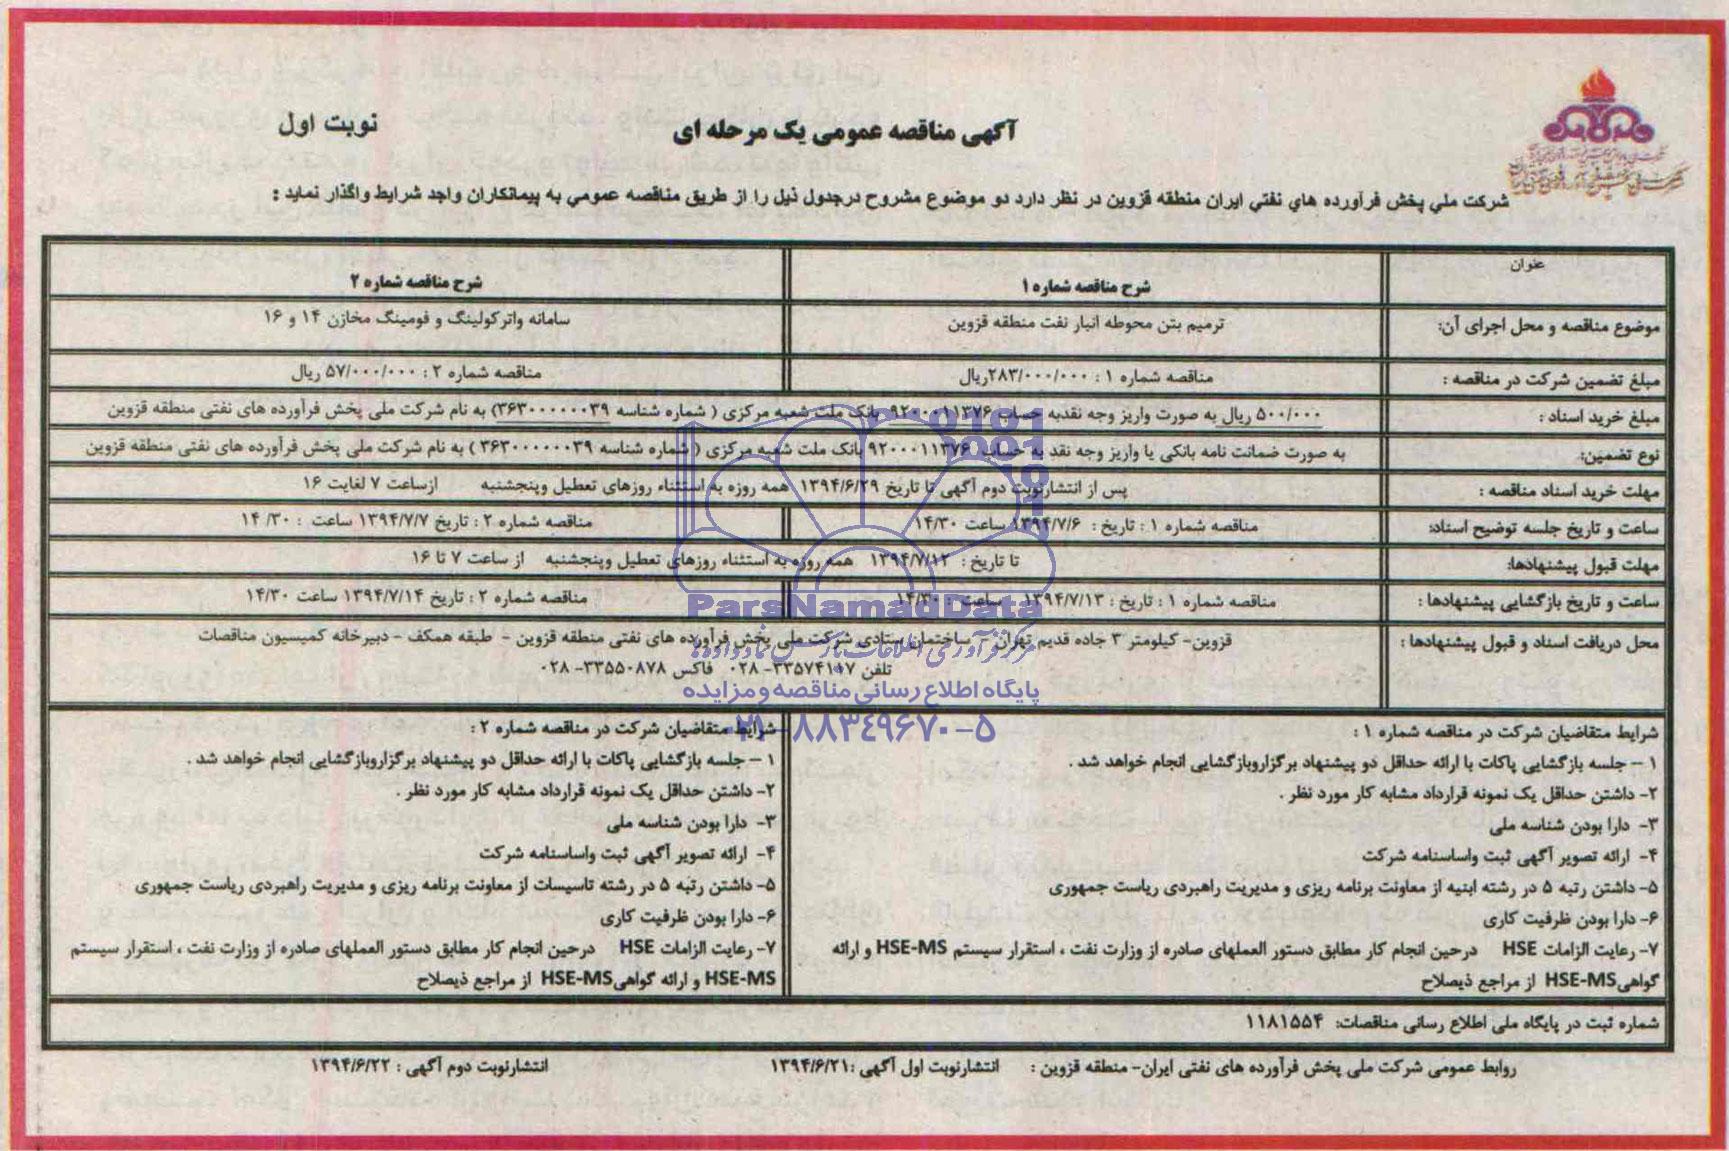 آگهی مناقصه عمومی یک مرحله ای
نوبت اول
شرکت ملي پخش فرآورده هاي نفتي ایران منطقه قزوین در نظر دارد دو موضوع مشروح درجدول ذیل را از طریق مناقصه عمومي به پیمانکاران واجد شرایط واگذار نماید :
عنوان
شرح مناقصه شماره ۱
شرح مناقصه شماره ۲
موضوع مناقصه و محل اجرای آن:
ترمیم بتن محوطه انبار نفت منطقه قزوین
سامانه واترکولینگ و فومینگ مخازن ۱۴ و ۱۶
مبلغ تضمین شرکت در مناقصه :
مناقصه شماره ۱ : ۲۸۳/۰۰۰/۰۰۰ریال
مناقصه شماره ۲ : ۵۷/۰۰۰/۰۰۰ ریال
مبلغ خرید اسناد :
۵۰۰/۰۰۰ ریال به صورت واریز وجه نقدبه حساب ۹۲۰۰۰۱۱۳۷۶ بانک ملت شعبه مرکزی ( شماره شناسه ۳۶۳۰۰۰۰۰۰۳۹) به نام شرکت ملی پخش فرآورده های نفتی منطقه قزوین
نوع تضمین:
به صورت ضمانت نامه بانکی یا واریز وجه نقد به حساب ۹۲۰۰۰۱۱۳۷۶ بانک ملت شعبه مرکزی ( شماره شناسه ۳۶۳۰۰۰۰۰۰۳۹ ) به نام شرکت ملی پخش فرآورده های نفتی منطقه قزوین
مهلت خرید اسناد مناقصه :
پس از انتشارنوبت دوم آگهی تا تاریخ ۱۳۹۴/۶/۲۹ همه روزه به استثناء روزهای تعطیل وپنجشنبه ازساعت ۷ لغایت ۱۶
ساعت و تاریخ جلسه توضیح اسناد:
مناقصه شماره ۱ : تاریخ : ۱۳۹۴/۷/۶ ساعت ۱۴/۳۰
مناقصه شماره ۲ : تاریخ ۱۳۹۴/۷/۷ ساعت : ۱۴/۳۰
مهلت قبول پیشنهادها:
تا تاریخ : ۱۳۹۴/۷/۱۲ همه روزه به استثناء روزهای تعطیل وپنجشنبه از ساعت ۷ تا ۱۶
ساعت و تاریخ بازگشایی پیشنهادها :
مناقصه شماره ۱ : تاریخ : ۱۳۹۴/۷/۱۳ ساعت : ۱۴/۳۰
مناقصه شماره ۲ : تاریخ ۱۳۹۴/۷/۱۴ ساعت ۱۴/۳۰
محل دریافت اسناد و قبول پیشنهادها :
قزوین- کیلومتر ۳ جاده قدیم تهران - ساختمان ستادی شرکت ملی پخش فرآورده های نفتی منطقه قزوین - طبقه همکف - دبیرخانه کمیسیون مناقصات
تلفن ۳۳۵۷۴۱۰۷- ۰۲۸ فاکس ۳۳۵۵۰۸۷۸- ۰۲۸
ParsNamadData
پایگاه اطلاع رسانی مناقصه و مزایده
۰۲۱-۸۸۳۴۹۶۷۰-۵
شرایط متقاضیان شرکت در مناقصه شماره ۱ :
۱ - جلسه بازگشایی پاکات با ارائه حداقل دو پیشنهاد برگزاروبازگشایی انجام خواهد شد .
۲- داشتن حداقل یک نمونه قرارداد مشابه کار مورد نظر .
۳- دارا بودن شناسه ملی
۴- ارائه تصویر آگهی ثبت واساسنامه شرکت
۵- داشتن رتبه ۵ در رشته ابنیه از معاونت برنامه ریزی و مدیریت راهبردی ریاست جمهوری
۶- دارا بودن ظرفیت کاری
۷- رعایت الزامات HSE درحین انجام کار مطابق دستور العملهای صادره از وزارت نفت ، استقرار سیستم HSE-MS و ارائه
گواهیHSE-MS از مراجع ذیصلاح
شرایط متقاضیان شرکت در مناقصه شماره ۲ :
۱ - جلسه بازگشایی پاکات با ارائه حداقل دو پیشنهاد برگزاروبازگشایی انجام خواهد شد .
۲- داشتن حداقل یک نمونه قرارداد مشابه کار مورد نظر .
۳- دارا بودن شناسه ملی
۴- ارائه تصویر آگهی ثبت واساسنامه شرکت
۵- داشتن رتبه ۵ در رشته تاسیسات از معاونت برنامه ریزی و مدیریت راهبردی ریاست جمهوری
۶- دارا بودن ظرفیت کاری
۷- رعایت الزامات HSE درحین انجام کار مطابق دستور العملهای صادره از وزارت نفت ، استقرار سیستم
HSE-MS و ارائه گواهیHSE-MS از مراجع ذیصلاح
شماره ثبت در پایگاه ملی اطلاع رسانی مناقصات: ۱۱۸۱۵۵۴
روابط عمومی شرکت ملی پخش فرآورده های نفتی ایران- منطقه قزوین : انتشارنوبت اول آگهی :۱۳۹۴/۶/۲۱ انتشارنوبت دوم آگهی : ۱۳۹۴/۶/۲۲